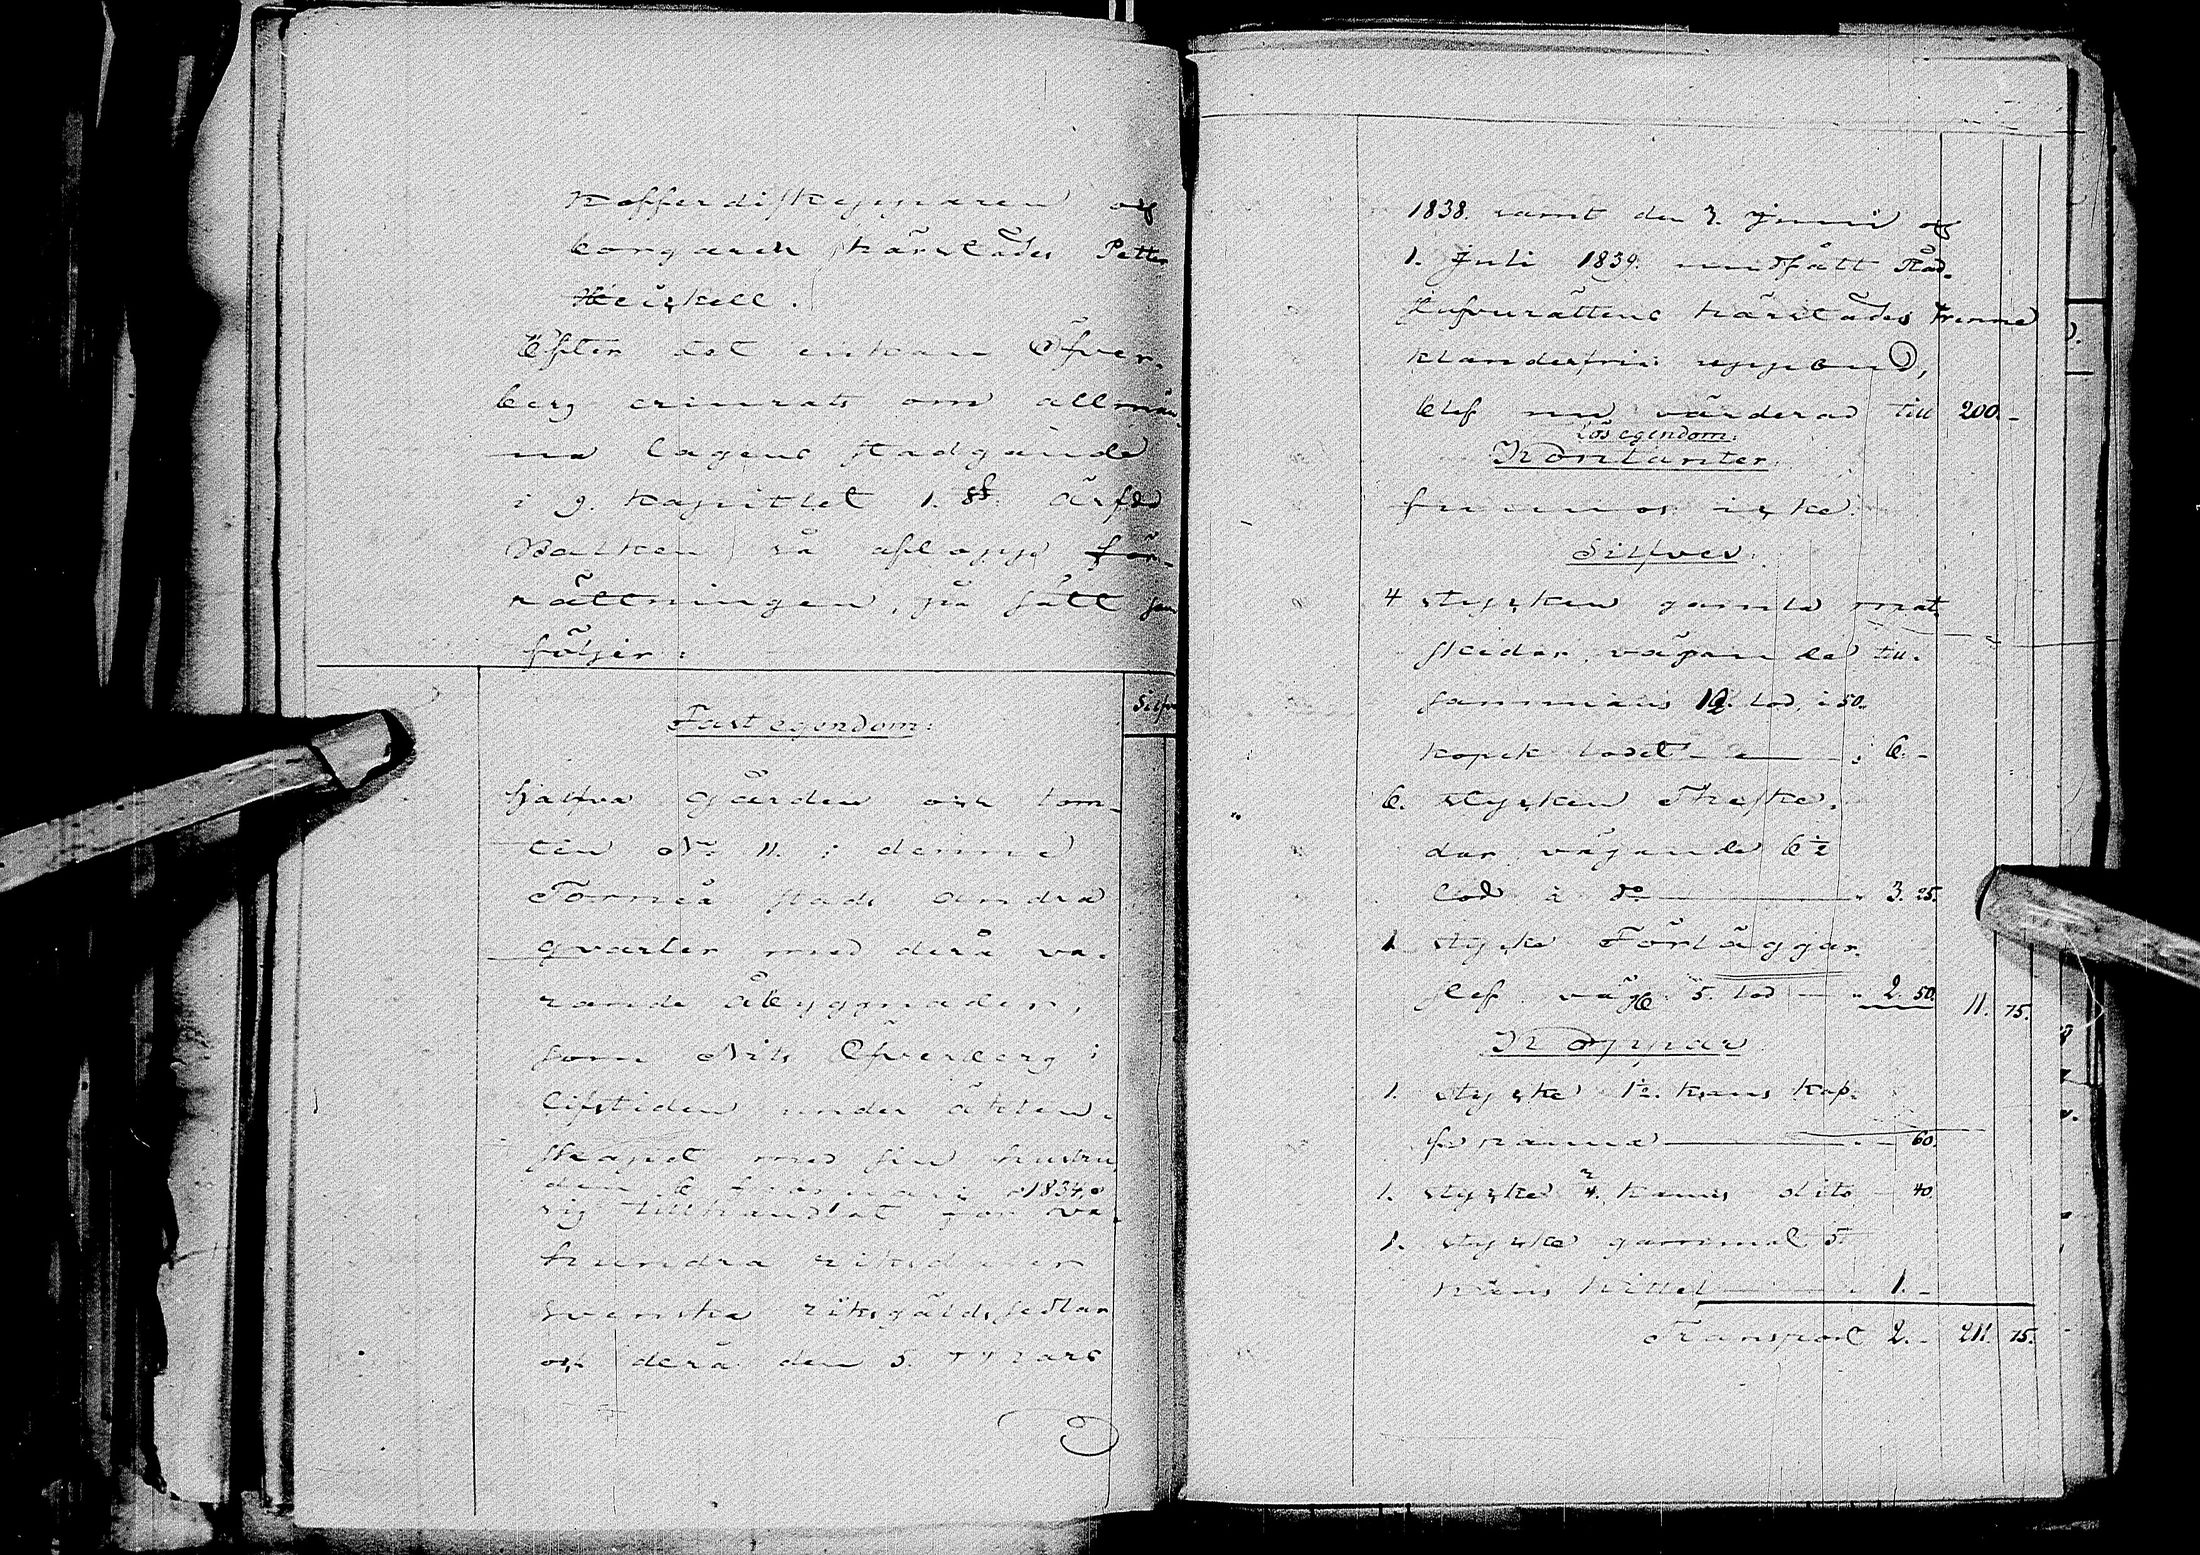 Kofferdiskepparen och
borgaren härstädes Petter
Heickell.
Efter det enkan Öfver-
berg erinrats om allmän-
na lagens stadgande
i 9. Kapittlet 1. § Ärfda
Balken, så aflopp för-
rättningen, på sätt som
följer:
Fast egendom:
Silfver
Halfva gården och tom-
ten No 11. i denne
Torneå stads andra
qvarter med derå va-
rande åbyggnader,
som Nils Öfverberg i
lifstiden under äkten-
skapet med sin hustru
den 6 februari 1834,
sig tillhandlat för
hundra riksdaler
svenska riksgäldssedlar
och derå den 5. mars
1838. samt den 3. Junii och
1. Juli 1839. undfått Råd-
stufvurättens härstädes trenne
klanderfria uppbud,
blef nu värderad till 200.-
Lös egendom:
Kontanter
funnos icke.
Silfver:
4 stycken gamla mat-
skedar, vägande till-
sammans 12. lod, à 50.
kopek lodet - " 6.-
6. stycken Theske-
dar, vägande 6½
lod à do - " 3. 25.
1. stycke Förläggar-
slef väger 5. lod - " 2. 50. 11. 75.
Koppar
1. stycke 1½. kans kaf-
fe panna - " - 60.
1. stycke 2/4. kanns dito - 40
1. stycke gammal 5.
kans kittel - " 1.-
Transport 2.- 211. 75.